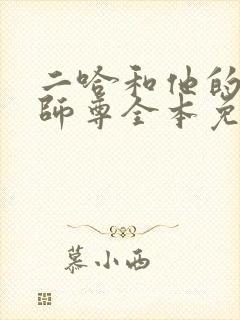 二哈和他的
師尊全本免
慕小西